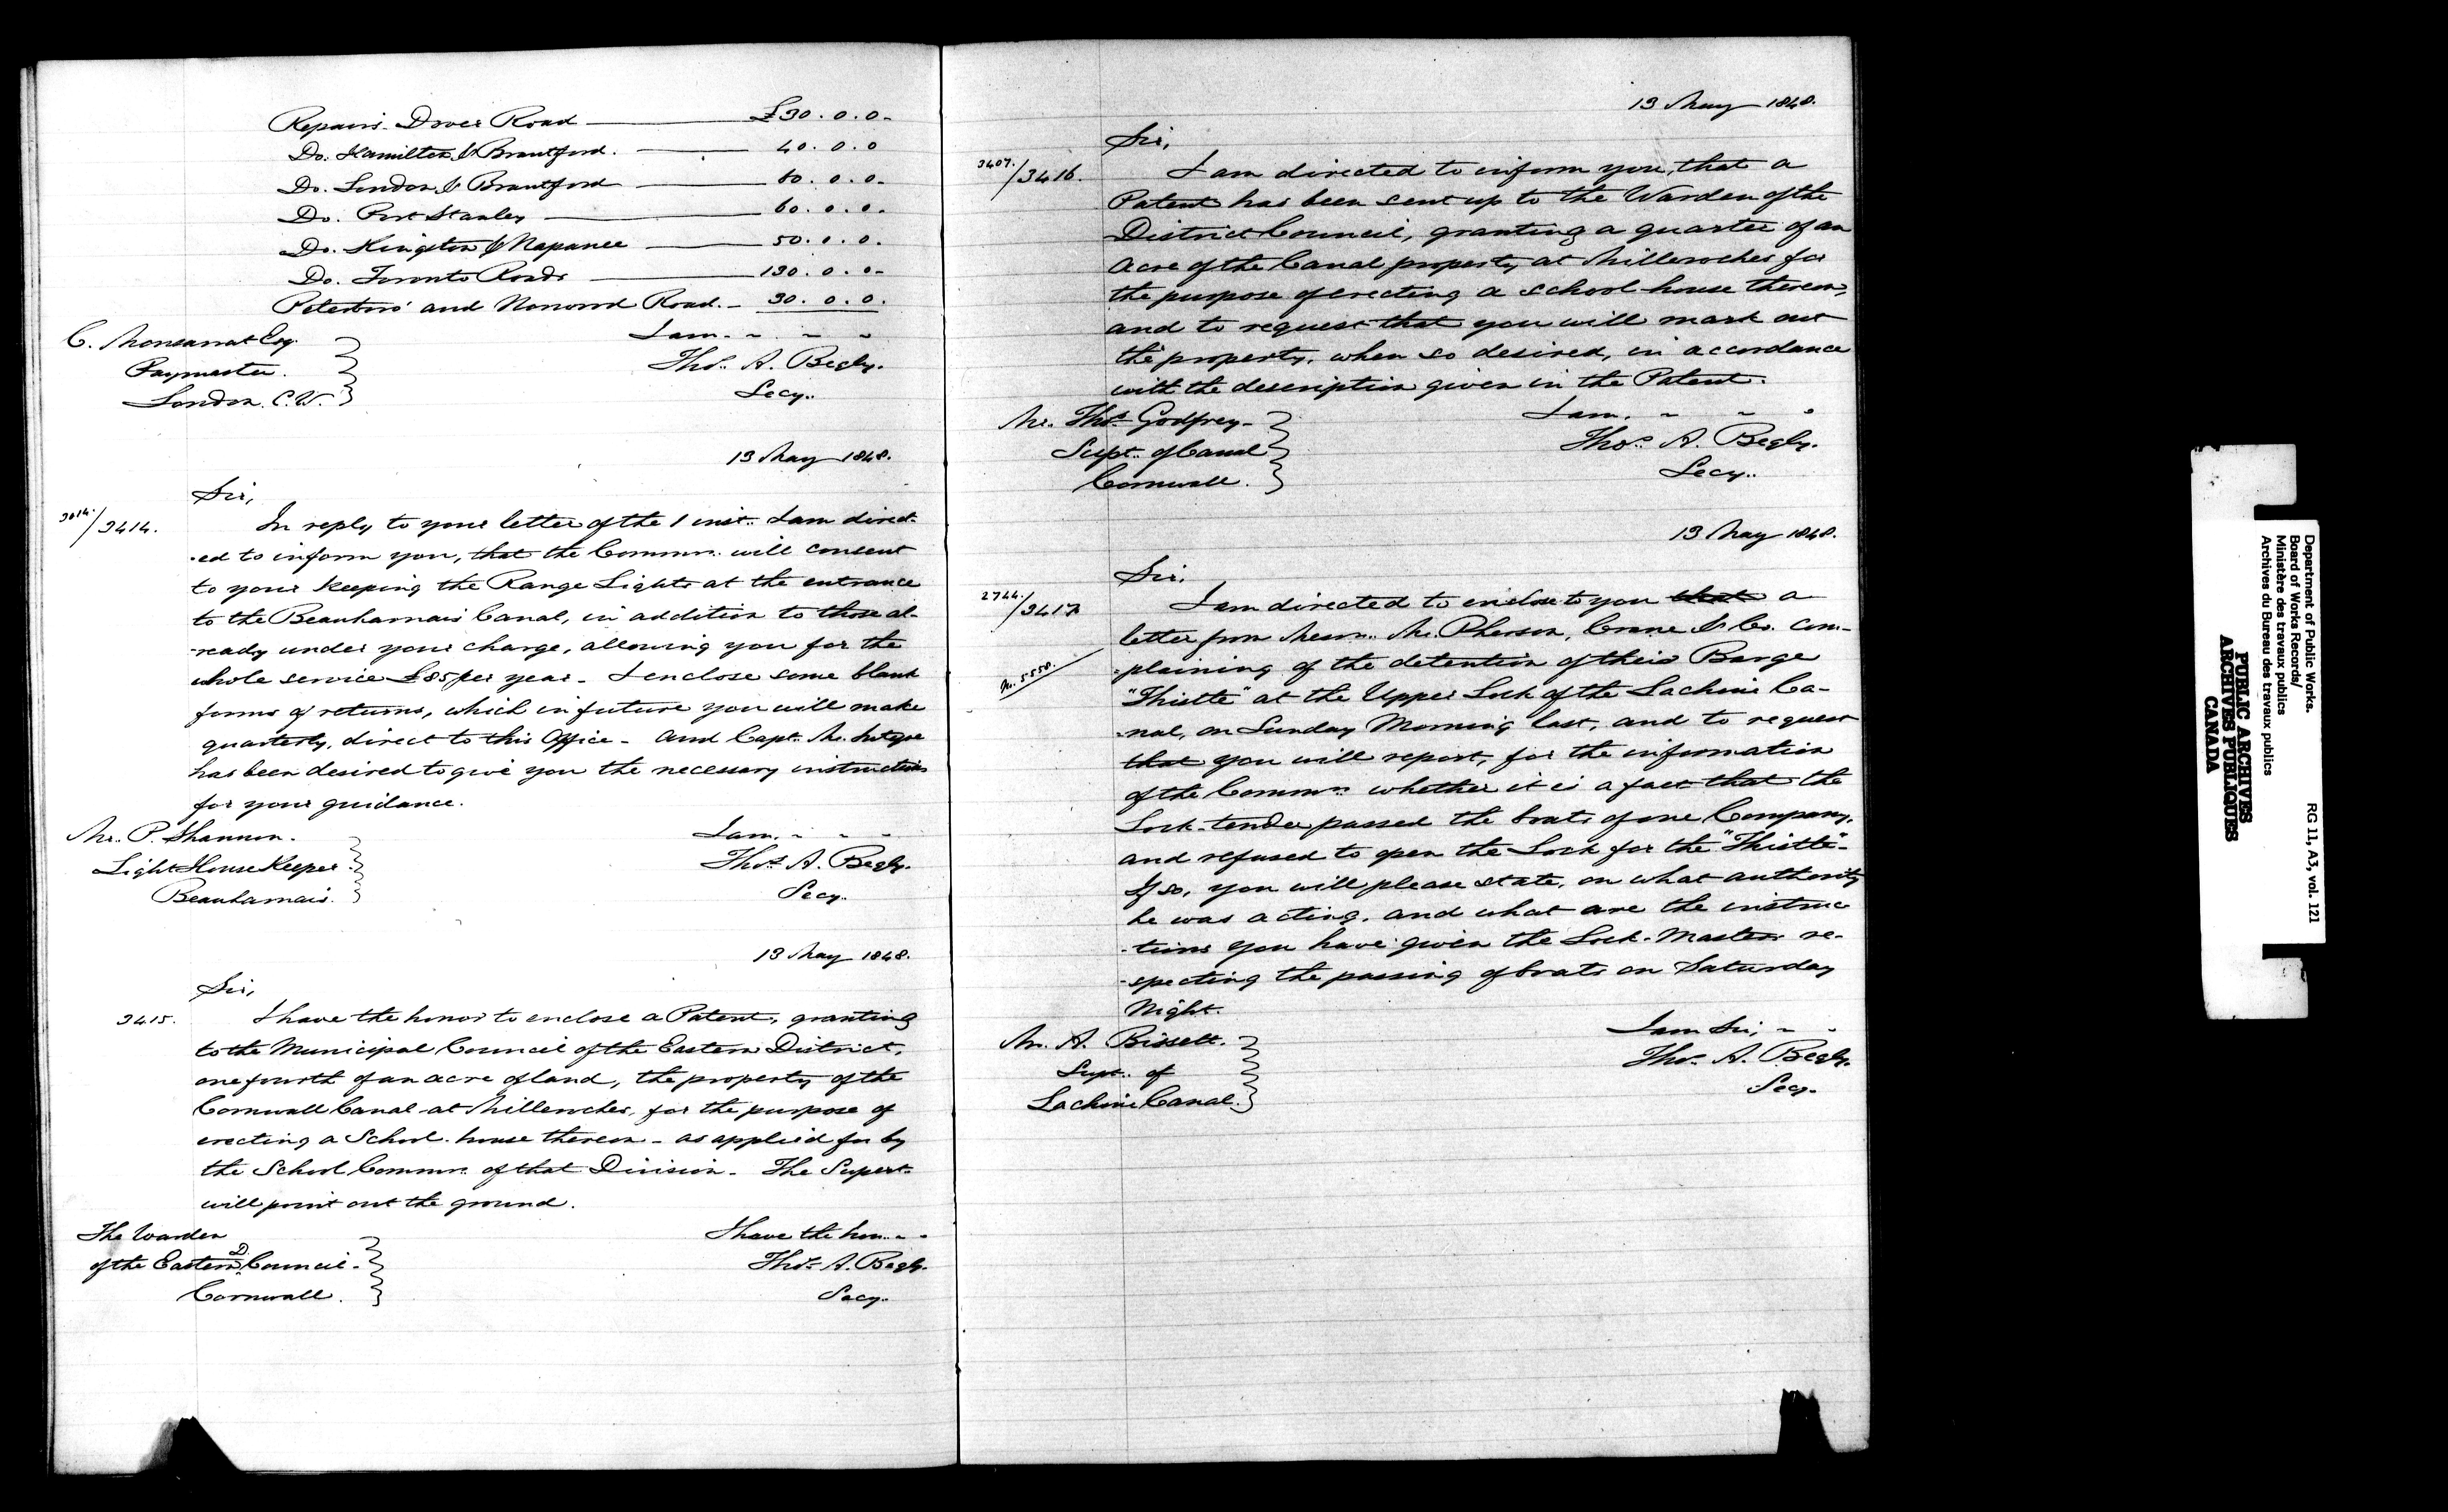 Repairs Dover Road £30. 0. 0.
Do. Hamilton & Brantford. 40. 0. 0
Do. London & Brantford 80. 0. 0.
Do. Port Stanley 60. 0. 0.
Do. Kingston & Napanee 50. 0. 0.
Do. Toronto Roads 130. 0. 0.
Peterboro' and Norwood Road. 30. 0. 0.
I am. " " "
C. Monsarrat Esq.
Paymaster.
London. C.W.
Thos. A. Begly.
Secy.
13 May 1848.
Sir,
3014./3414. In reply to your letter of the 1 inst. I am direct-
-ed to inform you, that the Commrs. will consent
to your keeping the Range Lights at the entrance
to the Beauharnais Canal, in addition to those al-
-ready under your charge, allowing you for the
whole service £85 per year - I enclose some blank
forms of returns, which in future you will make
quarterly, direct to this Office - And Capt. McIntyre
has been desired to give you the necessary instructions
for your guidance.
Mr. P. Shannon.
Light House Keeper
Beauharnais.
I am. " " "
Thos. A. Begly.
Secy.
13 May 1848.
Sir,
3415. I have the honor to enclose a Patent, granting
to the Municipal Council of the Eastern District,
one fourth of an acre of land, the property of the
Cornwall Canal at Milleroches, for the purpose of
erecting a School-house thereon - as applied for by
the School Commrs. of that Division - The Supert.
will point out the ground.
The Warden
of the Eastern D. Council.
Cornwall.
I have the hon. " "
Thos. A. Begly.
Secy.
13 May 1848.
Sir,
3407./3416. I am directed to inform you, that a
Patent has been sent up to the Warden of the
District Council, granting a quarter of an
Acre of the Canal property at Milleroches for
the purpose of erecting a school house thereon,
and to request that you will mark out
the property, when so desired, in accordance
with the description given in the Patent.
Mr. Thos. Godfrey.
Supt. of Canal
Cornwall.
I am. " " "
Thos. A. Begly.
Secy.
13 May 1848.
Sir,
2744./3417 I am directed to enclose to you that a
letter from Messrs. McPherson, Crane & Co. com-
No. 5550. -plaining of the detention of their Barge
"Thistle" at the Upper Lock of the Lachine Ca-
-nal, on Sunday Morning last, and to request
that you will report, for the information
of the Commrs. whether it is a fact that the
Lock-tender passed the boats of one Company,
and refused to open the Lock for the "Thistle"-
If so, you will please state, on what authority
he was acting, and what are the instruc
-tions you have given the Lock-Masters re-
-specting the passing of boats on Saturday
Night.
Mr. A. Bissett.
Supt. of
Lachine Canal.
I am Sir, " "
Thos. A. Begly.
Secy.
Department of Public Works. RG 11, A3, vol. 121
Board of Works Records/
Ministère des travaux publics
Archives du Bureau des travaux publics
PUBLIC ARCHIVES
ARCHIVES PUBLIQUES
CANADA